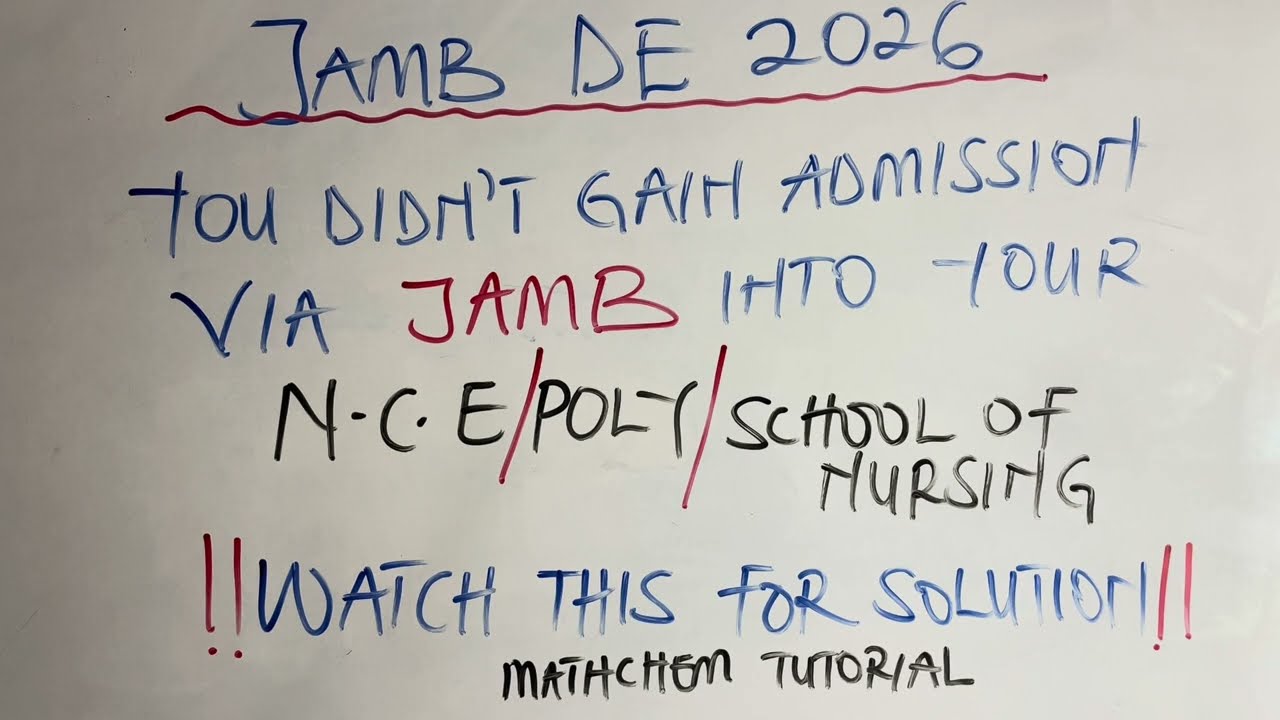 JAMB DE 2026
YOU DIDN'T GAIN ADMISSION
VIA JAMB INTO YOUR
N.C.E/POLY/SCHOOL OF
NURSING
!!WATCH THIS FOR SOLUTION!!
MATHCHEM TUTORIAL